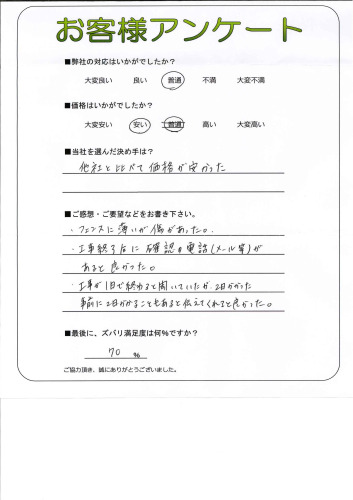 お客様アンケート
■弊社の対応はいかがでしたか？
大変良い 良い 普通 不満 大変不満
■価格はいかがでしたか？
大変安い 安い 普通 高い 大変高い
■当社を選んだ決め手は？
他社と比べて価格が安かった
■ご感想・ご要望などをお書き下さい。
・フェンスに薄いが傷があった。
・工事終了后に確認の電話(メール等)が
あると良かった。
・工事が1日で終わると聞いていたが、2日かかった
事前に2日かかることもあると伝えてくれると良かった。
■最後に、ズバリ満足度は何％ですか？
70 %
ご協力頂き、誠にありがとうございました。